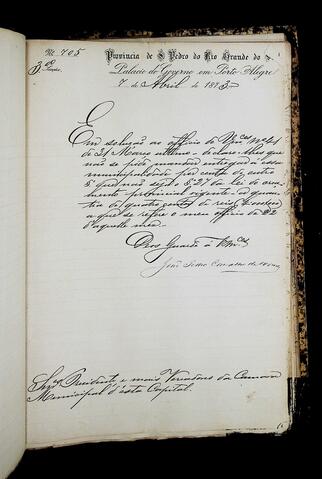 Nº 705
3ª Secção
Provincia de S Pedro do Rio Grande do
Palacio do Governo em Porto Alegre
7 de Abril de 1873
Em solução ao officio de Vmces nº
de 31 Março ultimo declaro-lhes que
não se póde mandar entregar á essa
municipalidade por conta de outro
§ que não seja o § 27 da lei do orça-
mento provincial vigente a quan-
tia de quatro contos de reis
a que se refere o meu officio de 22
d'aquelle mez.
Deos Guarde á Vmces
João Pedro Carvalho de Moraes
Snres Presidente e mais Vereadores da Camara
Municipal d'esta Capital.